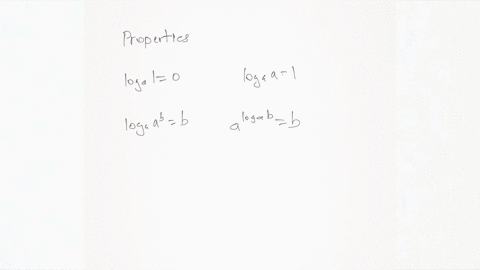 Properties
logₐ 1 = 0 logₐ a = 1
logₐ aᵇ = b a^(logₐ b) = b